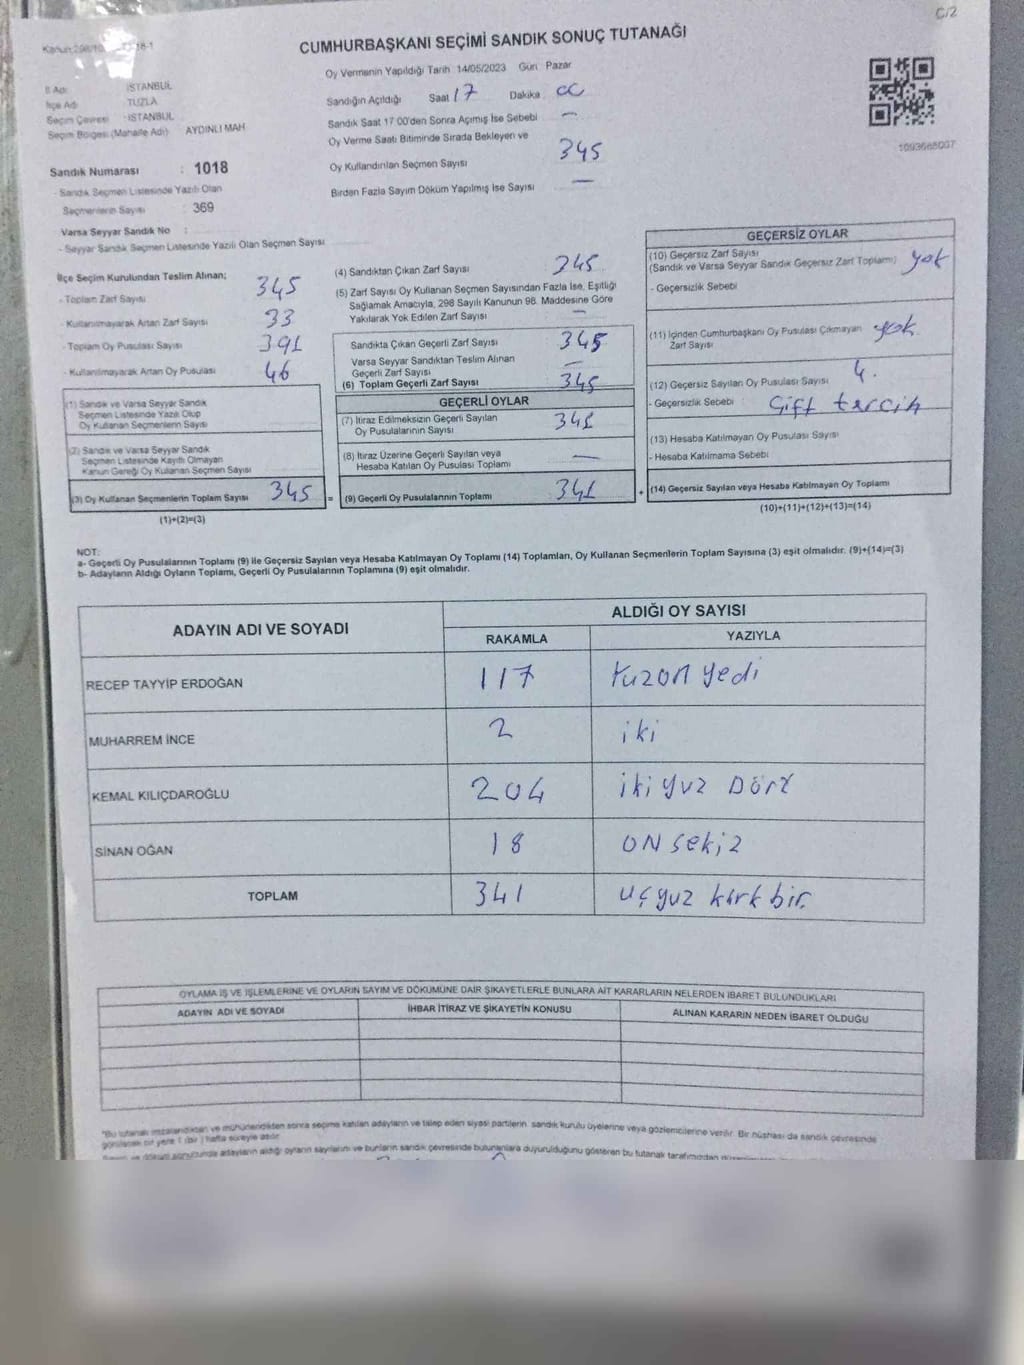 C/2
CUMHURBAŞKANI SEÇİMİ SANDIK SONUÇ TUTANAĞI
Oy Vermenin Yapıldığı Tarih 14/05/2023 Gün Pazar
İl Adı : İSTANBUL
İlçe Adı : TUZLA
Seçim Çevresi : İSTANBUL
Seçim Bölgesi (Mahalle Adı) AYDINLI MAH
Sandık Numarası : 1018
- Sandık Seçmen Listesinde Yazılı Olan
Seçmenlerin Sayısı : 369
Varsa Seyyar Sandık No :
- Seyyar Sandık Seçmen Listesinde Yazılı Olan Seçmen Sayısı
Sandığın Açıldığı Saat 17 Dakika 00
Sandık Saat 17 00'den Sonra Açılmış İse Sebebi —
Oy Verme Saati Bitiminde Sırada Bekleyen ve
Oy Kullandırılan Seçmen Sayısı 345
Birden Fazla Sayım Döküm Yapılmış İse Sayısı —
1093688007
İlçe Seçim Kurulundan Teslim Alınan;
- Toplam Zarf Sayısı 345
- Kullanılmayarak Artan Zarf Sayısı 33
- Toplam Oy Pusulası Sayısı 391
- Kullanılmayarak Artan Oy Pusulası 46
(1) Sandık ve Varsa Seyyar Sandık
Seçmen Listesinde Yazılı Olup
Oy Kullanan Seçmenlerin Sayısı
(2) Sandık ve Varsa Seyyar Sandık
Seçmen Listesinde Kayıtlı Olmayan
Kanun Gereği Oy Kullanan Seçmen Sayısı
(3) Oy Kullanan Seçmenlerin Toplam Sayısı 345 =
(1)+(2)=(3)
(4) Sandıktan Çıkan Zarf Sayısı 345
(5) Zarf Sayısı Oy Kullanan Seçmen Sayısından Fazla İse, Eşitliği
Sağlamak Amacıyla, 298 Sayılı Kanunun 98. Maddesine Göre
Yakılarak Yok Edilen Zarf Sayısı —
Sandıkta Çıkan Geçerli Zarf Sayısı 345
Varsa Seyyar Sandıktan Teslim Alınan
Geçerli Zarf Sayısı —
(6) Toplam Geçerli Zarf Sayısı 345
GEÇERLİ OYLAR
(7) İtiraz Edilmeksizin Geçerli Sayılan
Oy Pusulalarının Sayısı 341
(8) İtiraz Üzerine Geçerli Sayılan veya
Hesaba Katılan Oy Pusulası Toplamı —
(9) Geçerli Oy Pusulalarının Toplamı 341 +
GEÇERSİZ OYLAR
(10) Geçersiz Zarf Sayısı
(Sandık ve Varsa Seyyar Sandık Geçersiz Zarf Toplamı) yok
- Geçersizlik Sebebi
(11) İçinden Cumhurbaşkanı Oy Pusulası Çıkmayan yok
Zarf Sayısı
(12) Geçersiz Sayılan Oy Pusulası Sayısı 4.
- Geçersizlik Sebebi : Çift tercih
(13) Hesaba Katılmayan Oy Pusulası Sayısı
- Hesaba Katılmama Sebebi
(14) Geçersiz Sayılan veya Hesaba Katılmayan Oy Toplamı
(10)+(11)+(12)+(13)=(14)
NOT:
a- Geçerli Oy Pusulalarının Toplamı (9) ile Geçersiz Sayılan veya Hesaba Katılmayan Oy Toplamı (14) Toplamları, Oy Kullanan Seçmenlerin Toplam Sayısına (3) eşit olmalıdır. (9)+(14)=(3)
b- Adayların Aldığı Oyların Toplamı, Geçerli Oy Pusulalarının Toplamına (9) eşit olmalıdır.
ADAYIN ADI VE SOYADI
ALDIĞI OY SAYISI
RAKAMLA YAZIYLA
RECEP TAYYİP ERDOĞAN 117 Yuzon yedi
MUHARREM İNCE 2 iki
KEMAL KILIÇDAROĞLU 204 iki yuz Dört
SİNAN OĞAN 18 ON sekiz
TOPLAM 341 uçyuz kırk bir.
OYLAMA İŞ VE İŞLEMLERİNE VE OYLARIN SAYIM VE DÖKÜMÜNE DAİR ŞİKAYETLERLE BUNLARA AİT KARARLARIN NELERDEN İBARET BULUNDUKLARI
ADAYIN ADI VE SOYADI İHBAR İTİRAZ VE ŞİKAYETİN KONUSU ALINAN KARARIN NEDEN İBARET OLDUĞU
*Bu tutanak imzalandıktan ve mühürlendikten sonra seçime katılan adayların ve talep eden siyasi partilerin, sandık kurulu üyelerine veya gözlemcilerine verilir. Bir nüshası da sandık çevresinde
görülecek bir yere 1 (bir) hafta süreyle asılır.
adayların aldığı oyların sayılarını ve bunların sandık çevresinde bulunanlara duyurulduğunu gösteren bu tutanak tarafımızdan